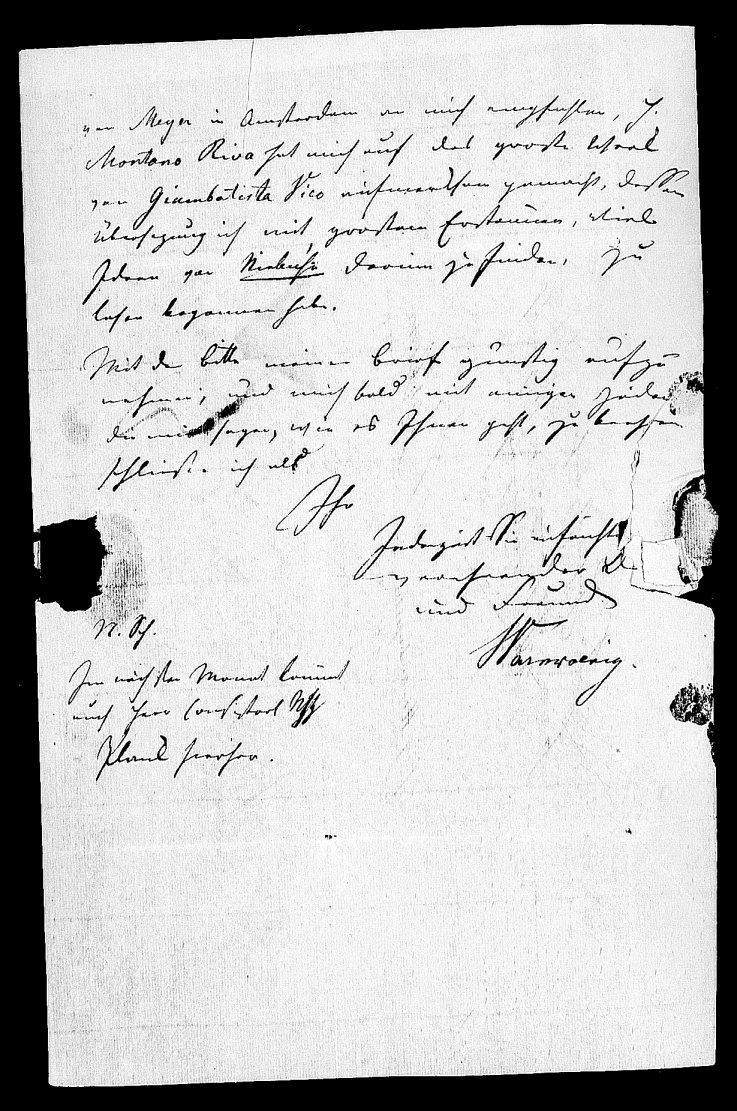 von Meyer in Amsterdam an mich empfohlen, H.
Montano Riva hat mich auf das große Werk
von Giambatista Vico aufmerksam gemacht, dessen
Übersetzung ich mit großem Erstaunen, viele
Ideen von Niebuhr darin zu finden, zu
lesen begonnen habe.
Mit der Bitte meinen Brief gunstig aufzu
nehmen, und mich bald mit einigen
die mir sagen, wie es Ihnen geht, zu
schließe ich als
Ihr
Sie
verehrender
und Freund
Warnkoenig.
N. Sch.
Im nächsten Monat kommt
auch Herr
Planck hierher.